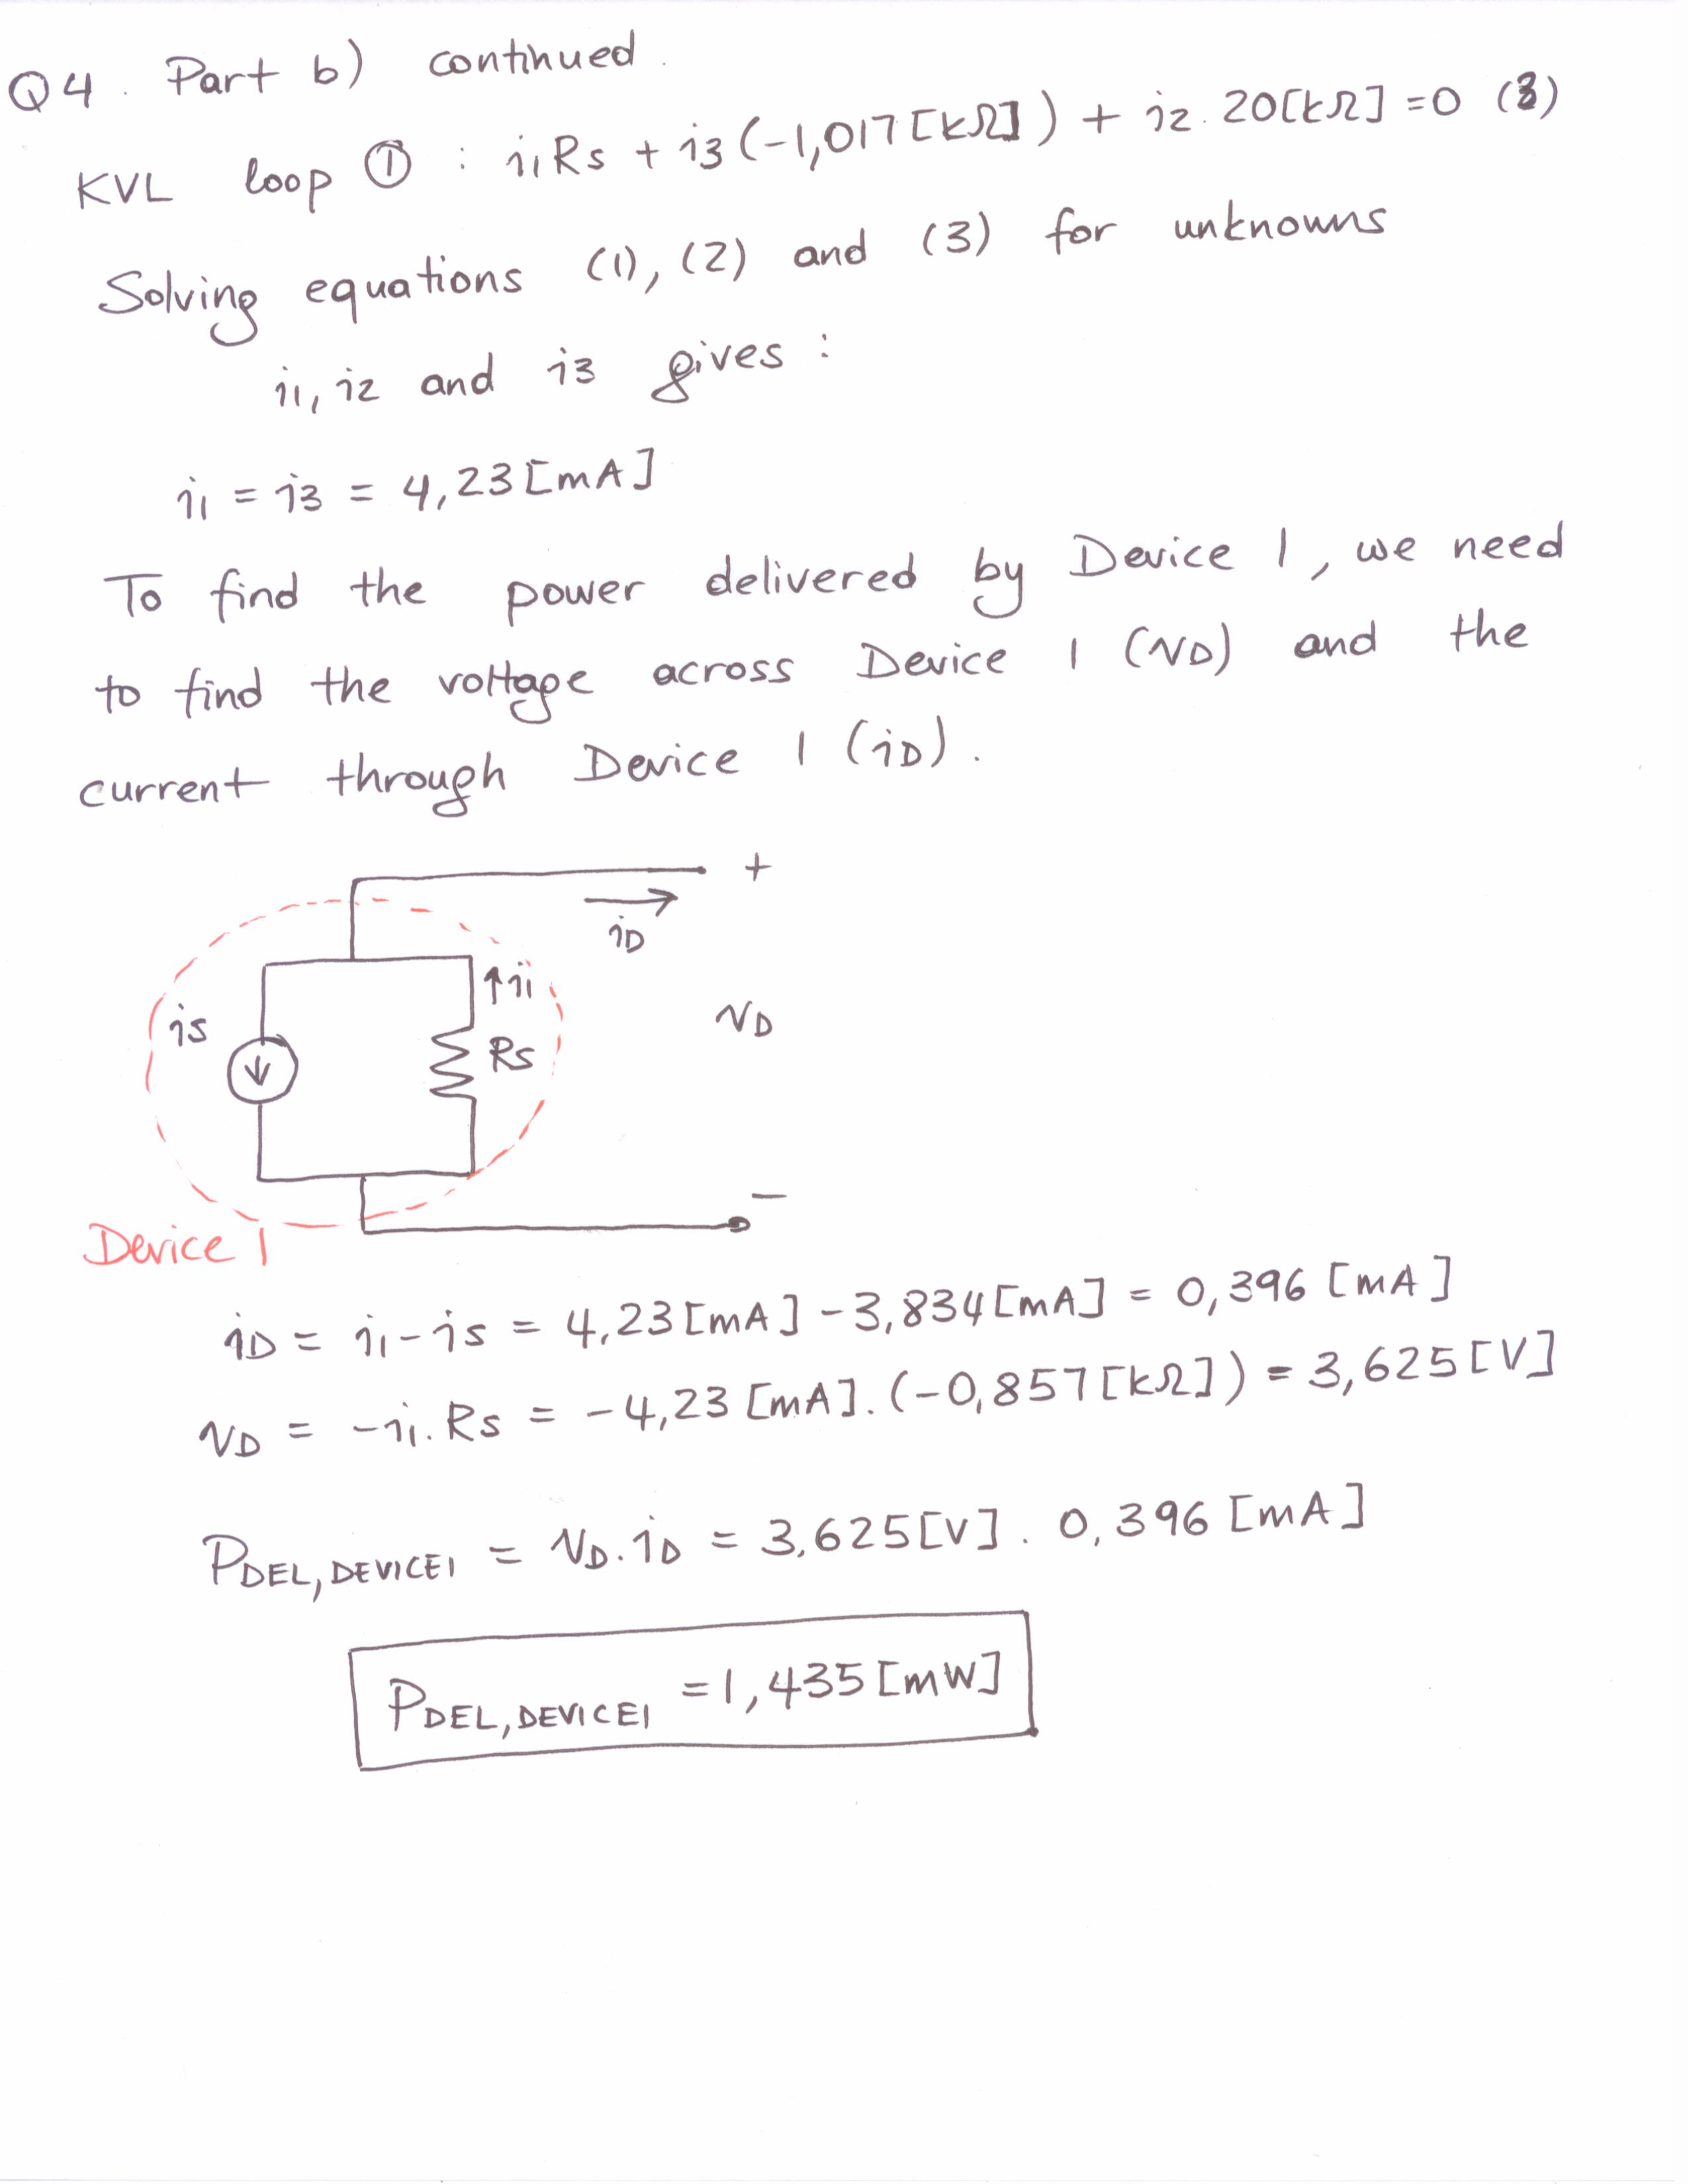 Q4. Part b) continued.
KVL loop ① : i1Rs + i3(-1,017[kΩ]) + i2.20[kΩ]=0 (3)
Solving equations (1), (2) and (3) for unknowns
i1, i2 and i3 gives :
i1 = i3 = 4,23[mA]
To find the power delivered by Device 1, we need
to find the voltage across Device 1 (vD) and the
current through Device 1 (iD).
+
iD
↑i1
is
vD
Rs
-
Device 1
iD = i1-is = 4,23[mA]-3,834[mA] = 0,396 [mA]
vD = -i1.Rs = -4,23 [mA].(-0,857[kΩ]) = 3,625[V]
PDEL,DEVICE1 = vD.iD = 3,625[V]. 0,396 [mA]
PDEL,DEVICE1 =1,435[mW]